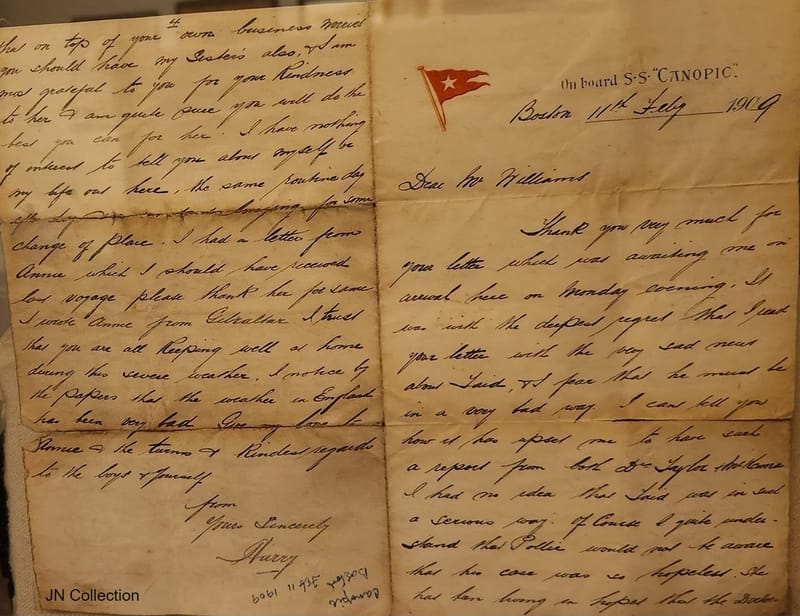 On board S.S. "CANOPIC".
Boston 11th Feby 1909
Dear Mr Williams
Thank you very much for
your letter which was awaiting me on
arrival here on Monday evening. It
was with the deepest regret that I read
your letter with the very sad news
about Said, & I fear that he must be
in a very bad way. I cant tell you
how it has upset me to have such
a report from both Drs Taylor &
I had no idea that Said was in such
a serious way. Of Course I quite under-
stand that Pollie would not be aware
that his case was so hopeless. She
has been living in hopes that the Doctor
4
that on top of your own business worries
you should have my Sister's also, & I am
most grateful to you for your Kindness
to her & am quite sure you will do the
best you can for her. I have nothing
of interest to tell you about myself or
my life out here, the same routine day
after day & longing for some
change of place. I had a letter from
Annie which I should have received
last voyage please thank her for same
I wrote Annie from Gibraltar. I trust
that you are all Keeping well at home
during this severe weather. I notice by
the papers that the weather in England
has been very bad. Give my love to
Annie & the & Kindest regards
to the boys & Yourself
from
Yours Sincerely
Harry
Canopic
Boston Feb 11 1909
JN Collection